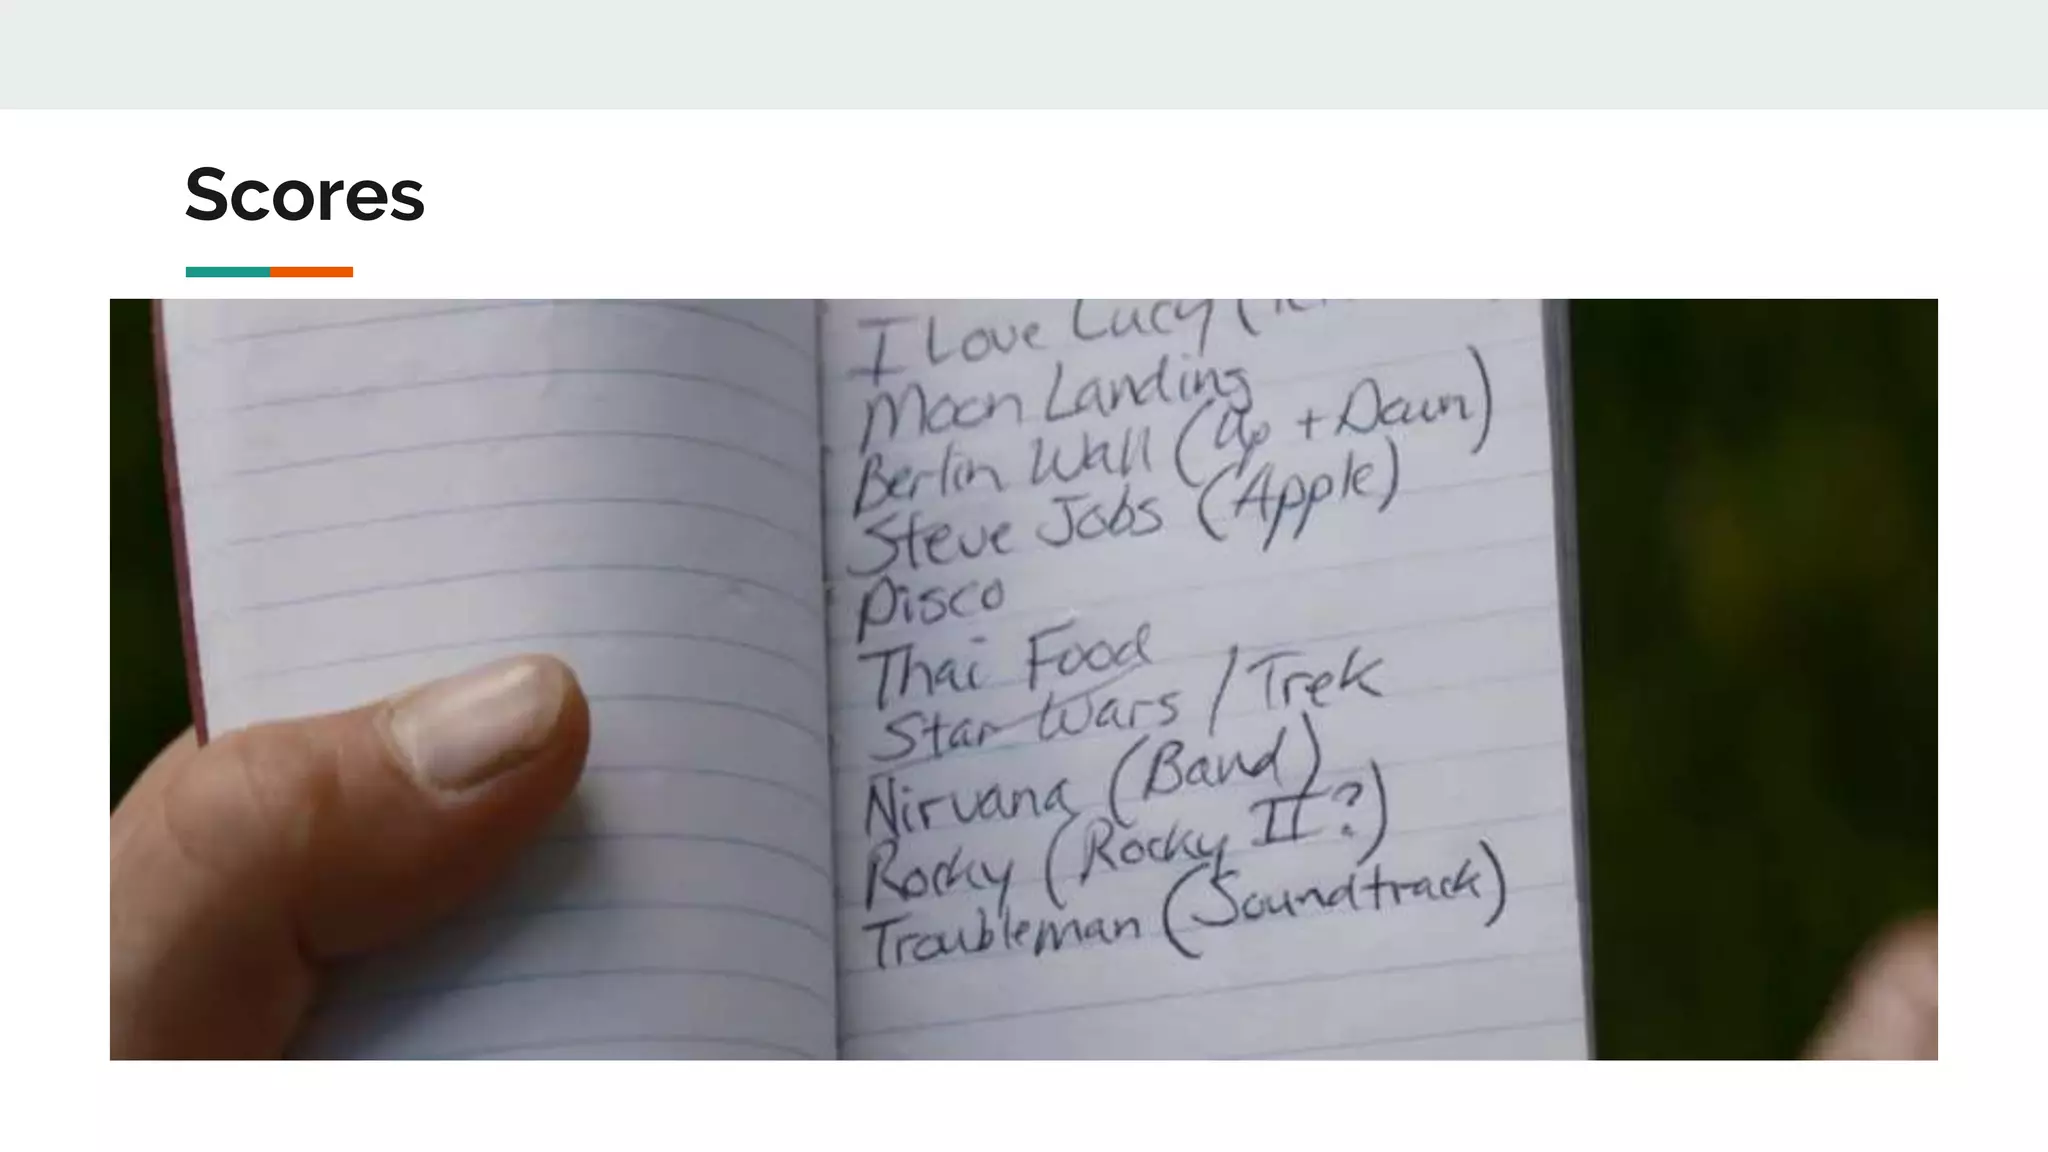 Scores
I Love Lucy (
Moon Landing
Berlin Wall (Up + Down)
Steve Jobs (Apple)
Disco
Thai Food
Star Wars / Trek
Nirvana (Band)
Rocky (Rocky II?)
Troubleman (Soundtrack)